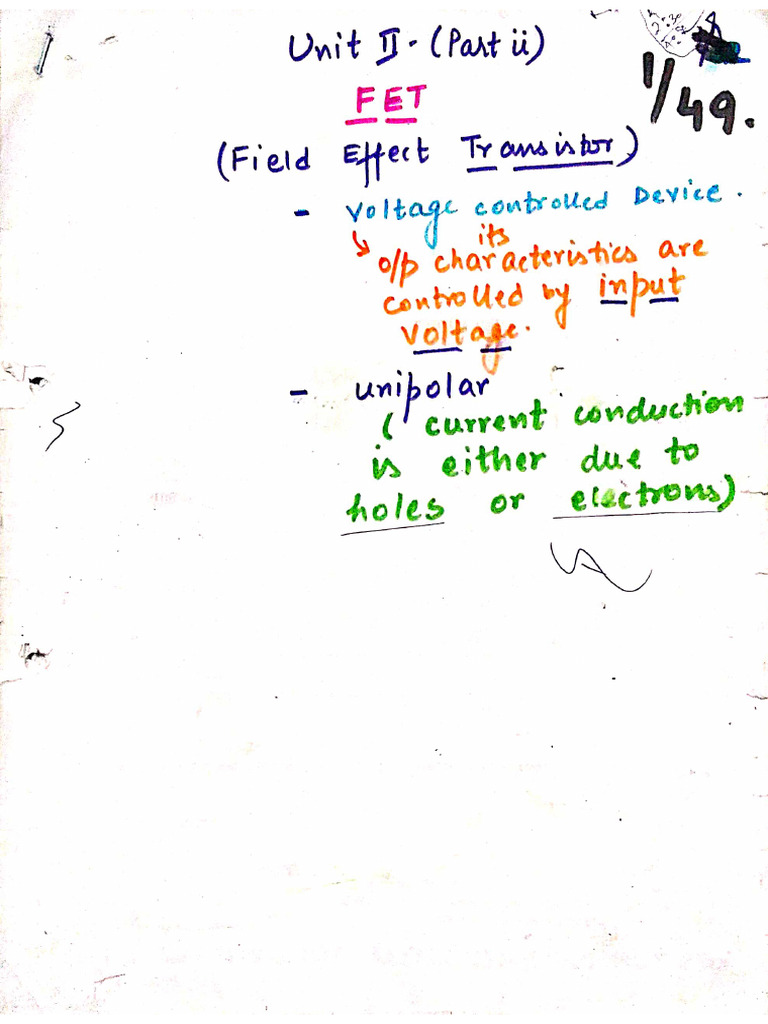 Unit II - (Part ii)
1/49.
FET
(Field Effect Transistor)
- Voltage controlled Device.
↳ its
o/p characteristics are
controlled by input
voltage.
- unipolar
( current conduction
is either due to
holes or electrons)